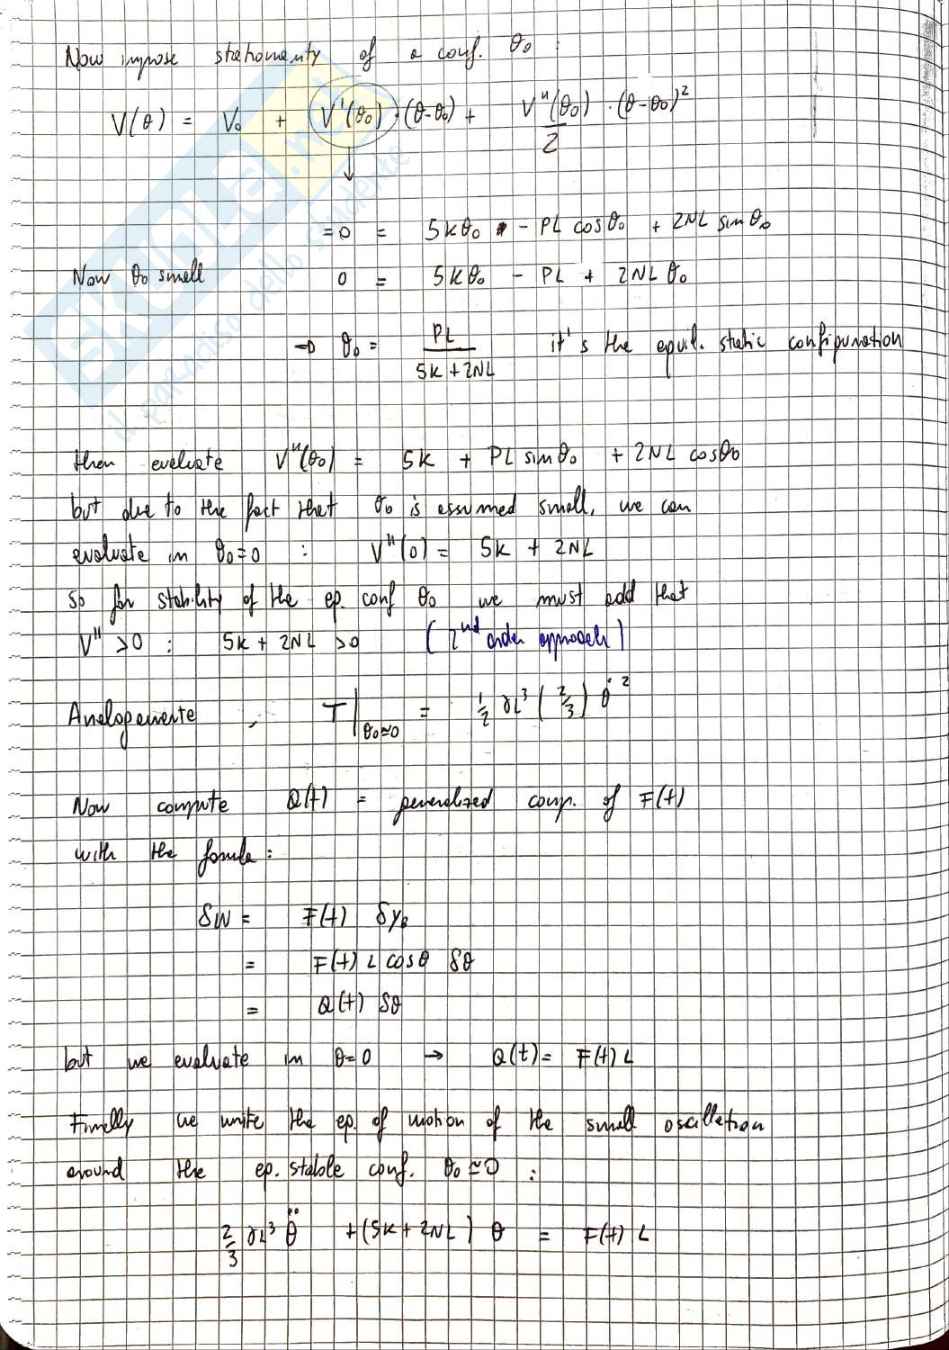 Now impose stationarity of a conf. θ₀ :
V(θ) = V₀ + V'(θ₀)·(θ-θ₀) + V''(θ₀)/2 ·(θ-θ₀)²
=0 = 5kθ₀ - PL cosθ₀ + 2NL sinθ₀
Now θ₀ small 0 = 5kθ₀ - PL + 2NLθ₀
→ θ₀ = PL/(5k+2NL) it's the equil. static configuration
then evaluate V''(θ₀) = 5k + PL sinθ₀ + 2NL cosθ₀
but due to the fact that θ₀ is assumed small, we can
evaluate in θ₀=0 : V''(0) = 5k + 2NL
so for stability of the eq. conf θ₀ we must add that
V'' >0 : 5k + 2NL >0 (2nd order approach)
Analogamente, T|θ₀≃0 = 1/2 γL³ (2/3) θ̇²
Now compute Q(t) = generalized comp. of F(t)
with the fomula:
δW = F(t) δy_B
= F(t) L cosθ δθ
= Q(t) δθ
but we evaluate in θ=0 → Q(t)= F(t) L
Finally we write the eq. of motion of the small oscillation
around the eq. stable conf. θ₀≃0 :
2/3 γL³ θ̈ +(5k+2NL) θ = F(t) L